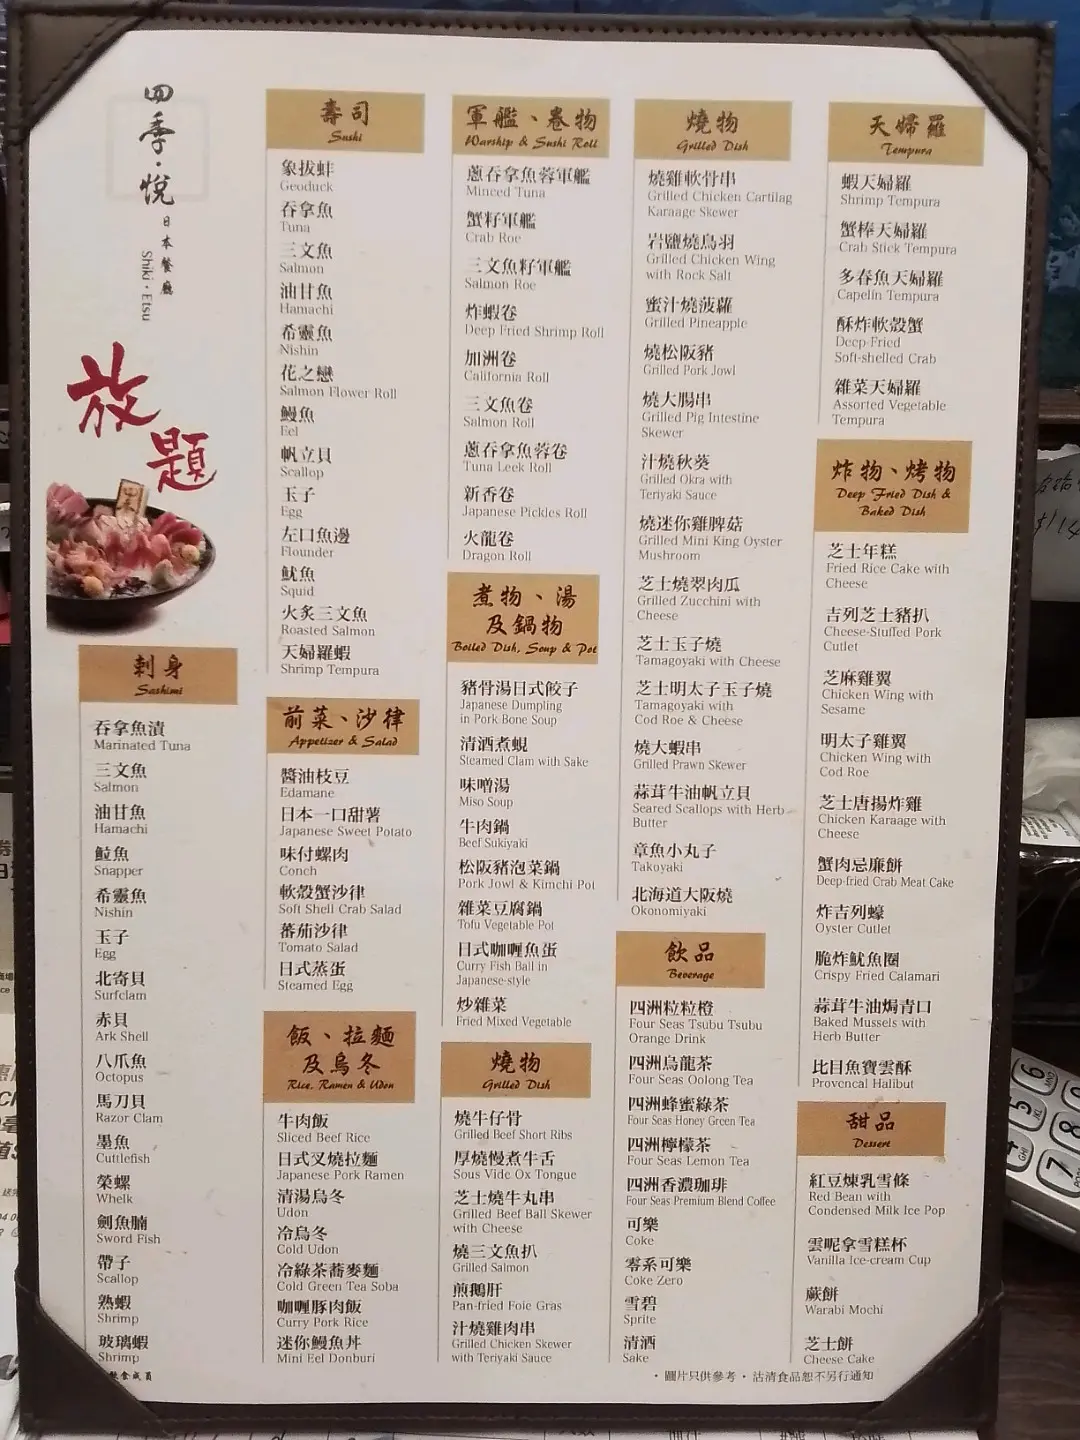 四季·悅
日本餐廳
Shiki·Etsu
放題
刺身
Sashimi
吞拿魚漬
Marinated Tuna
三文魚
Salmon
油甘魚
Hamachi
鮫魚
Snapper
希靈魚
Nishin
玉子
Egg
北寄貝
Surfclam
赤貝
Ark Shell
八爪魚
Octopus
馬刀貝
Razor Clam
墨魚
Cuttlefish
螢螺
Whelk
劍魚腩
Sword Fish
帶子
Scallop
熟蝦
Shrimp
玻璃蝦
Shrimp
飲食成員
壽司
Sushi
象拔蚌
Geoduck
吞拿魚
Tuna
三文魚
Salmon
油甘魚
Hamachi
希靈魚
Nishin
花之戀
Salmon Flower Roll
鰻魚
Eel
帆立貝
Scallop
玉子
Egg
左口魚邊
Flounder
魷魚
Squid
火炙三文魚
Roasted Salmon
天婦羅蝦
Shrimp Tempura
前菜、沙律
Appetizer & Salad
醬油枝豆
Edamane
日本一口甜薯
Japanese Sweet Potato
味付螺肉
Conch
軟殼蟹沙律
Soft Shell Crab Salad
蕃茄沙律
Tomato Salad
日式蒸蛋
Steamed Egg
飯、拉麵
及烏冬
Rice, Ramen & Udon
牛肉飯
Sliced Beef Rice
日式叉燒拉麵
Japanese Pork Ramen
清湯烏冬
Udon
冷烏冬
Cold Udon
冷綠茶蕎麥麵
Cold Green Tea Soba
咖喱豚肉飯
Curry Pork Rice
迷你鰻魚丼
Mini Eel Donburi
軍艦、卷物
Warship & Sushi Roll
蔥吞拿魚蓉軍艦
Minced Tuna
蟹籽軍艦
Crab Roe
三文魚籽軍艦
Salmon Roe
炸蝦卷
Deep Fried Shrimp Roll
加洲卷
California Roll
三文魚卷
Salmon Roll
蔥吞拿魚蓉卷
Tuna Leek Roll
新香卷
Japanese Pickles Roll
火龍卷
Dragon Roll
煮物、湯
及鍋物
Boiled Dish, Soup & Pot
豬骨湯日式餃子
Japanese Dumpling
in Pork Bone Soup
清酒煮蜆
Steamed Clam with Sake
味噌湯
Miso Soup
牛肉鍋
Beef Sukiyaki
松阪豬泡菜鍋
Pork Jowl & Kimchi Pot
雜菜豆腐鍋
Tofu Vegetable Pot
日式咖喱魚蛋
Curry Fish Ball in
Japanese-style
炒雜菜
Fried Mixed Vegetable
燒物
Grilled Dish
燒牛仔骨
Grilled Beef Short Ribs
厚燒慢煮牛舌
Sous Vide Ox Tongue
芝士燒牛丸串
Grilled Beef Ball Skewer
with Cheese
燒三文魚扒
Grilled Salmon
煎鵝肝
Pan-fried Foie Gras
汁燒雞肉串
Grilled Chicken Skewer
with Teriyaki Sauce
燒物
Grilled Dish
燒雞軟骨串
Grilled Chicken Cartilag
Karaage Skewer
岩鹽燒鳥羽
Grilled Chicken Wing
with Rock Salt
蜜汁燒菠蘿
Grilled Pineapple
燒松阪豬
Grilled Pork Jowl
燒大腸串
Grilled Pig Intestine
Skewer
汁燒秋葵
Grilled Okra with
Teriyaki Sauce
燒迷你雞脾菇
Grilled Mini King Oyster
Mushroom
芝士燒翠肉瓜
Grilled Zucchini with
Cheese
芝士玉子燒
Tamagoyaki with Cheese
芝士明太子玉子燒
Tamagoyaki with
Cod Roe & Cheese
燒大蝦串
Grilled Prawn Skewer
蒜茸牛油帆立貝
Seared Scallops with Herb
Butter
章魚小丸子
Takoyaki
北海道大阪燒
Okonomiyaki
飲品
Beverage
四洲粒粒橙
Four Seas Tsubu Tsubu
Orange Drink
四洲烏龍茶
Four Seas Oolong Tea
四洲蜂蜜綠茶
Four Seas Honey Green Tea
四洲檸檬茶
Four Seas Lemon Tea
四洲香濃咖啡
Four Seas Premium Blend Coffee
可樂
Coke
零系可樂
Coke Zero
雪碧
Sprite
清酒
Sake
天婦羅
Tempura
蝦天婦羅
Shrimp Tempura
蟹棒天婦羅
Crab Stick Tempura
多春魚天婦羅
Capelin Tempura
酥炸軟殼蟹
Deep-Fried
Soft-shelled Crab
雜菜天婦羅
Assorted Vegetable
Tempura
炸物、烤物
Deep Fried Dish &
Baked Dish
芝士年糕
Fried Rice Cake with
Cheese
吉列芝士豬扒
Cheese-Stuffed Pork
Cutlet
芝麻雞翼
Chicken Wing with
Sesame
明太子雞翼
Chicken Wing with
Cod Roe
芝士唐揚炸雞
Chicken Karaage with
Cheese
蟹肉忌廉餅
Deep-fried Crab Meat Cake
炸吉列蠔
Oyster Cutlet
脆炸魷魚圈
Crispy Fried Calamari
蒜茸牛油焗青口
Baked Mussels with
Herb Butter
比目魚寶雲酥
Provencal Halibut
甜品
Dessert
紅豆煉乳雪條
Red Bean with
Condensed Milk Ice Pop
雲呢拿雪糕杯
Vanilla Ice-cream Cup
蕨餅
Warabi Mochi
芝士餅
Cheese Cake
·圖片只供參考·沽清食品恕不另行通知